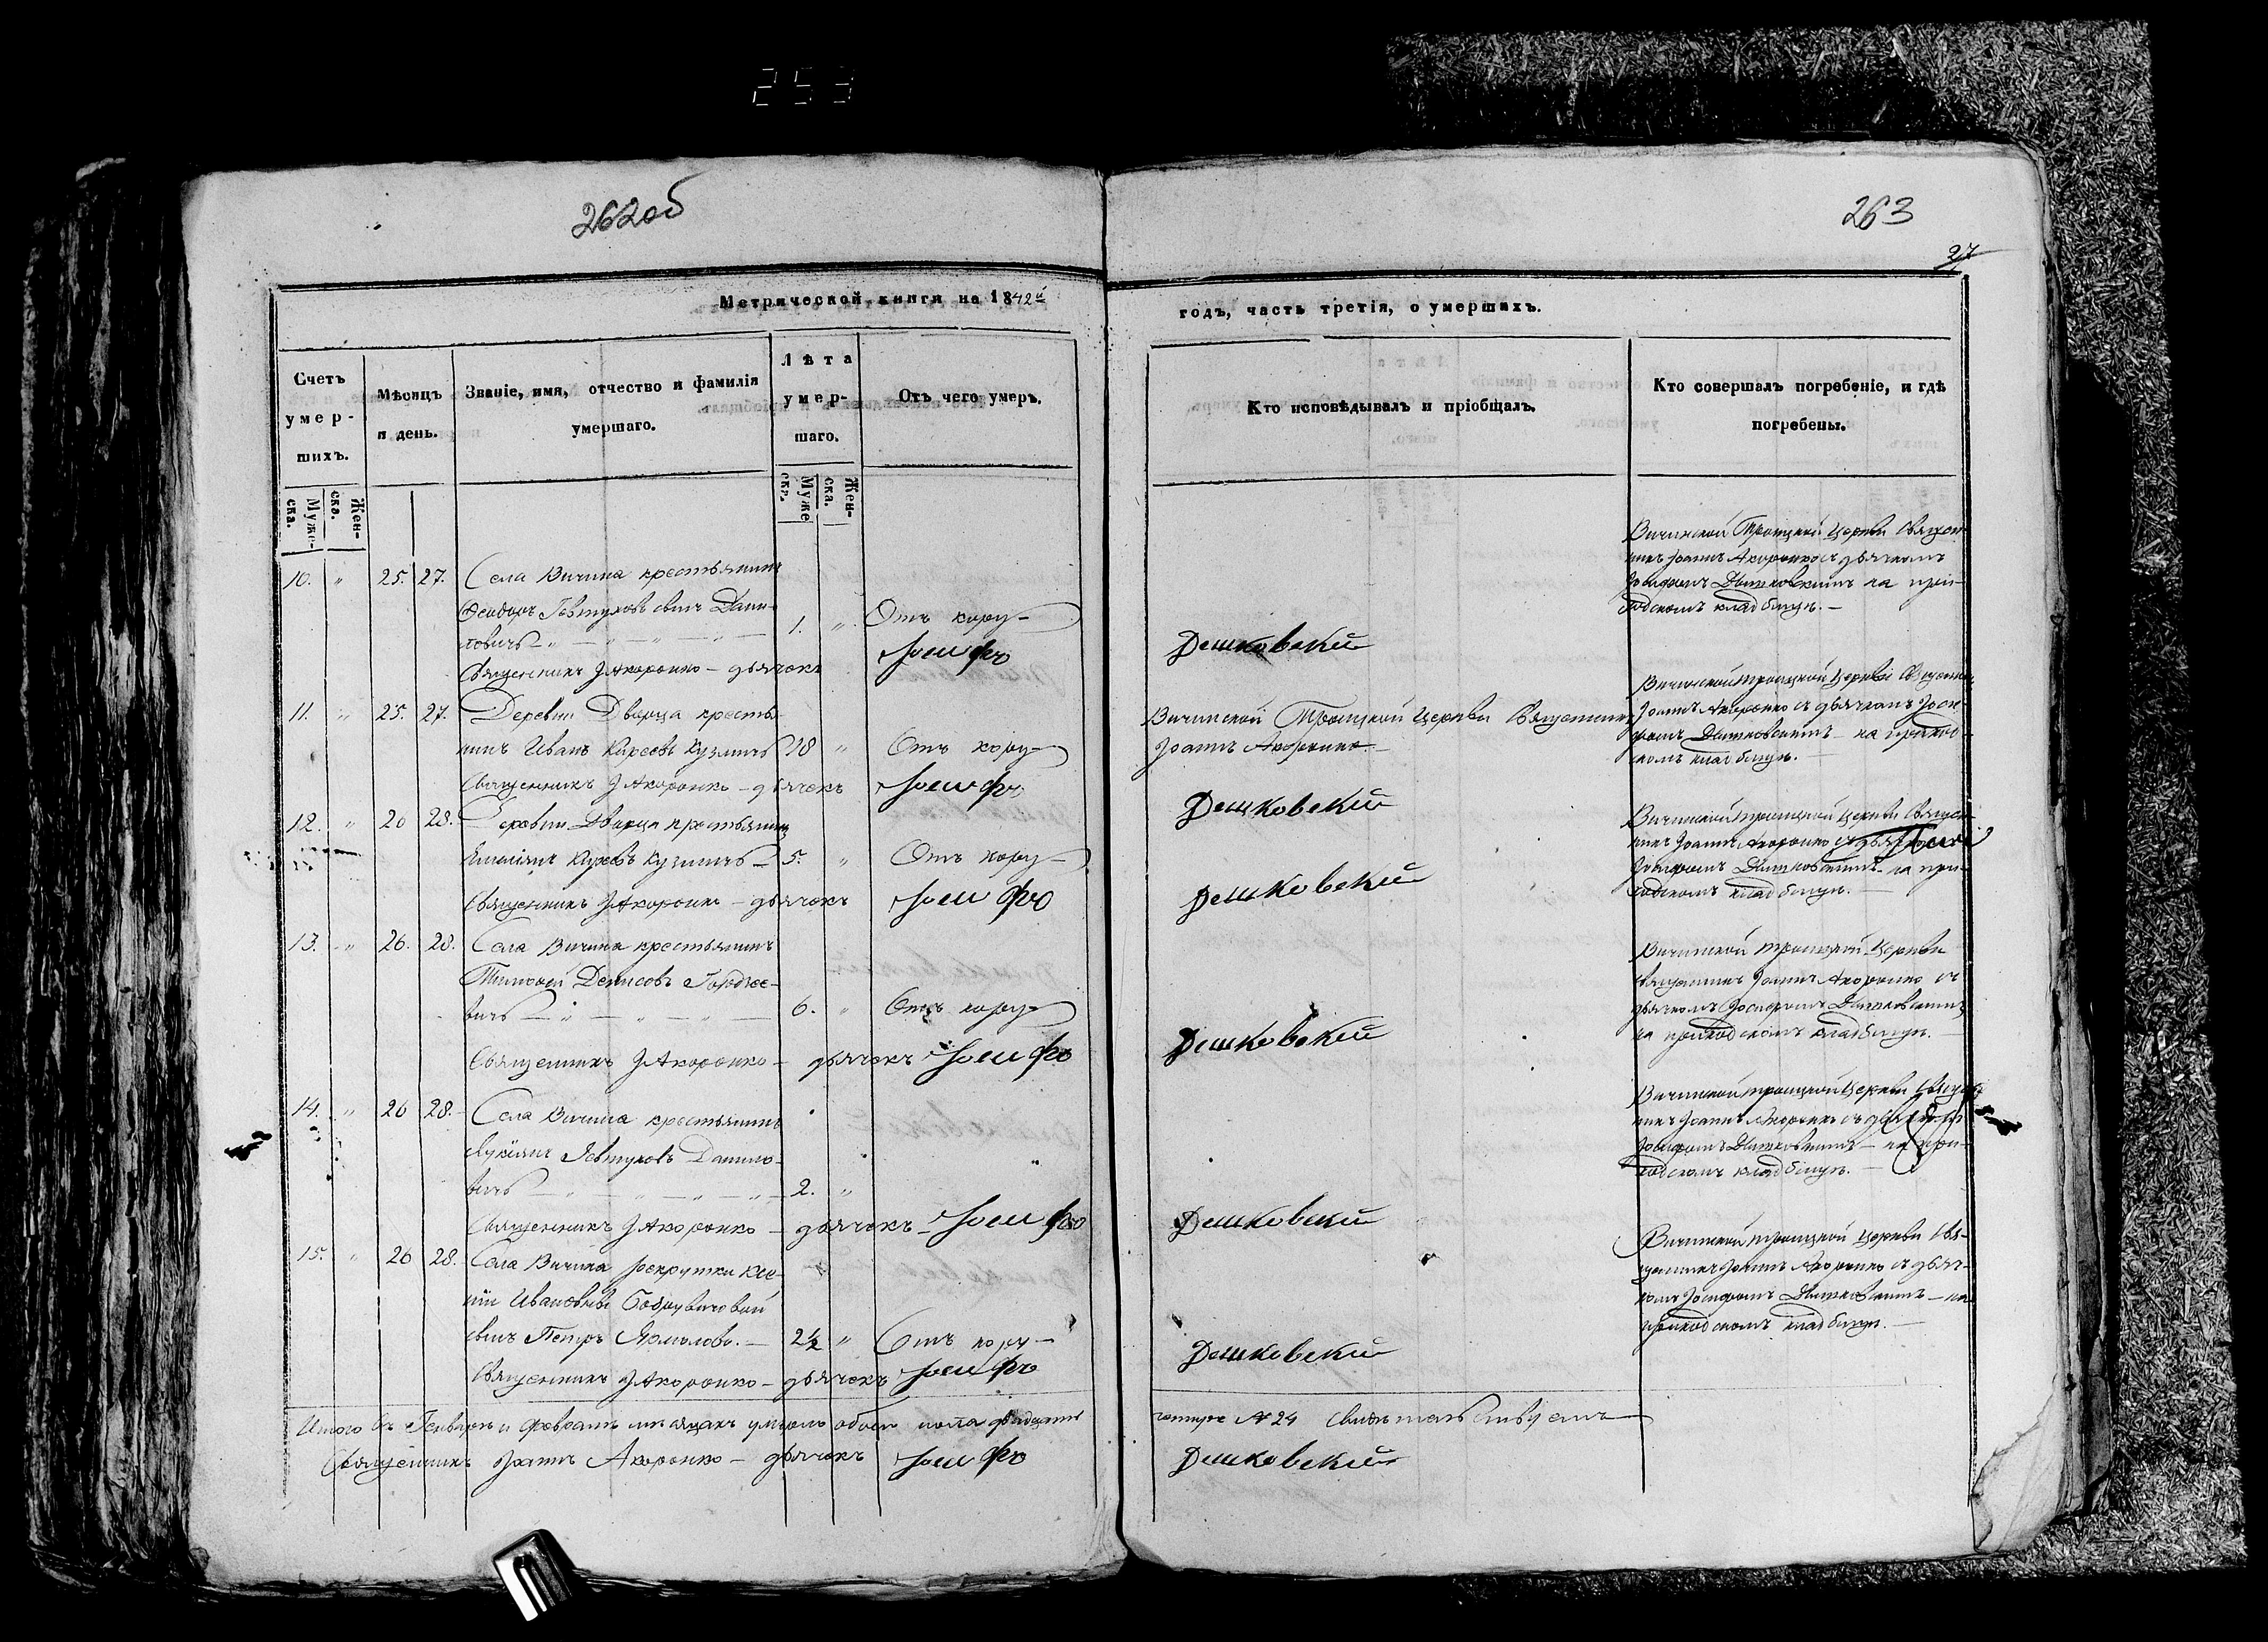 253
262об
263
27
Метрической книги на 1842й
годъ, часть третія, о умершихъ.
Счетъ умер-шихъ.
Мѣсяцъ и день.
Званіе, имя, отчество и фамилія умершаго.
Лѣта умер-шаго.
Отъ чего умеръ.
Кто исповѣдывалъ и пріобщалъ.
Кто совершалъ погребеніе, и гдѣ погребены.
Муже-ска.
Жен-ска.
Муже-ска.
Жен-ска.
10. " 25. 27. Села Вичина крестьянинъ
Феодоръ Евтуховъ сынъ Дани-
ловичь 1. " Отъ кору
Священникъ І Акоронко – дьячокъ Іосифъ Дешковскій
Вичинской Троицкой Церкви Священ-
никъ Іоаннъ Акоронко съ дьячкомъ
Іосифомъ Дешковскимъ на при-
ходскомъ кладбищѣ. –
11. " 25. 27. Деревни Дворца кресть-
нинъ Иванъ Киреевъ Кузмичъ 18 " Отъ кору
Священникъ І Акоронко – дьячокъ Іосифъ Дешковскій
Вичинской Троицкой Церкви Священник
Іоаннъ Акоронко –
Вичинской троицкой Церкви Священник
Іоаннъ Акоронко съ дьячкомъ Іоси-
фомъ Дешковскимъ на приход-
скомъ кладбищѣ. –
12. " 26 28. Деревни Дворца крестьянинъ
Киреевъ Кузмичъ – 5. " Отъ кору
Священникъ І Акоронко – дьячокъ Іосифъ Дешковскій
Вичинской троицкой Церкви Священ-
никъ Іоаннъ Акоронко съ дьячкомъ
Іосифомъ Дешковскимъ – на при-
ходскомъ кладбищѣ. –
13. " 26. 28. Села Вичина крестьянинъ
Тимофей Денисовъ Гордіе-
вичъ 6. " Отъ кору
Священникъ І Акоронко – дьячокъ Іосифъ Дешковскій
Вичинской троицкой Церкви
священникъ Іоаннъ Акоронко съ
дьячкомъ Іосифомъ Дешковскимъ
на приходскомъ кладбищѣ. –
14. " 26 28. Села Вичина крестьянинъ
Лукіянъ Евтуховъ Данило-
вичъ 2. "
Священникъ І Акоронко – дьячокъ – Іосифъ Дешковскій
Вичинской троицкой Церкви Священ-
никъ Іоаннъ Акоронко съ дьячкомъ
Іосифомъ Дешковскимъ – на при-
ходскомъ кладбищѣ. –
15. " 26 28. Села Вичина рекрутки Ксе-
ніи Ивановны
сынъ Петръ – 2½ " Отъ кору –
Священникъ І Акоронко – дьячокъ Іосифъ Дешковскій
Вичинской троицкой Церкви Свя-
щенникъ Іоаннъ Акоронко съ дьяч-
комъ Іосифомъ Дешковскимъ – на
приходскомъ кладбищѣ. –
Итого въ Генварѣ и Февралѣ мѣсяцахъ умерло обоего пола двадцать четыре № 24 свидѣтельствуемъ
Священникъ Іоаннъ Акоронко – дьячокъ Іосифъ Дешковскій